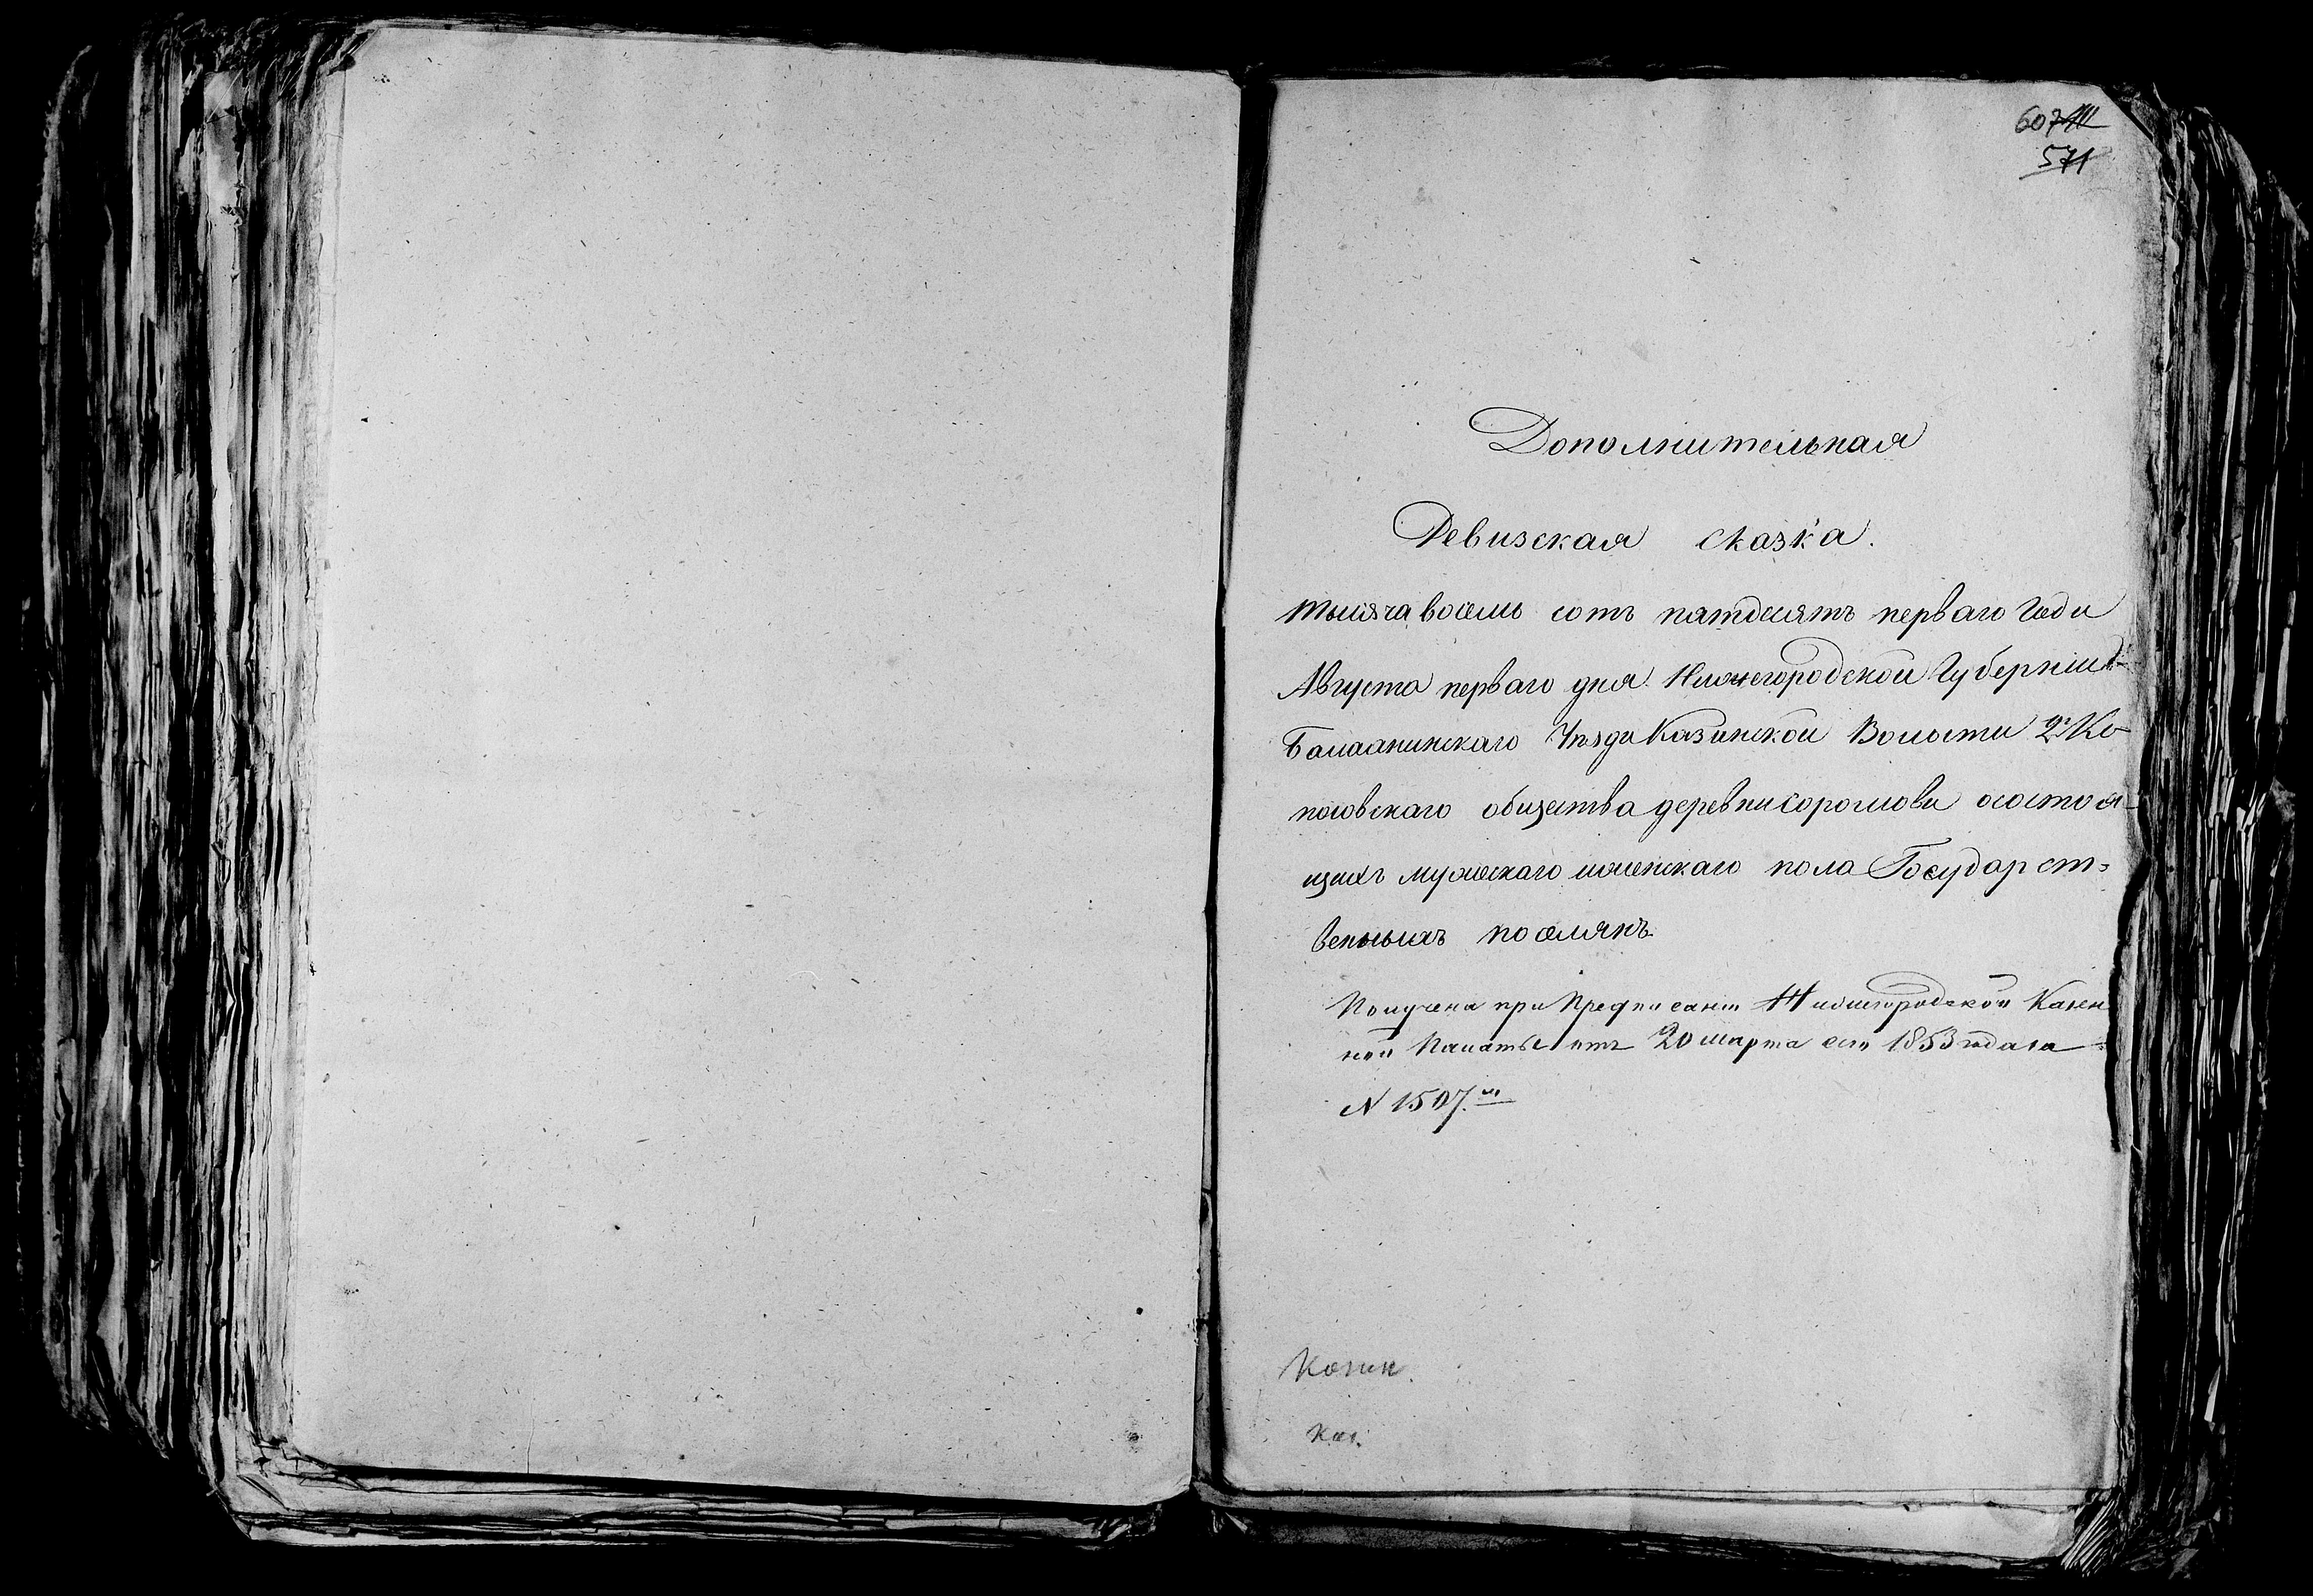 607
571
Дополнительная
Ревизская сказка.
тысяча восемь сотъ пятдесятъ перваго года
Августа перваго дня Нижегородской Губернии
Балахнинскаго Уѣзда Козинской Волости 2<sup>го</sup> Ко-
посовскаго общества деревни Сормова осостоя-
щихъ мужескаго иженскаго пола Государст=
венныхъ поселянъ.
Получена при Предписании Нижегородской Казен
ной Палаты отъ 20 марта сего 1853 года за
N 1507.<sup>мъ</sup>
Козин.